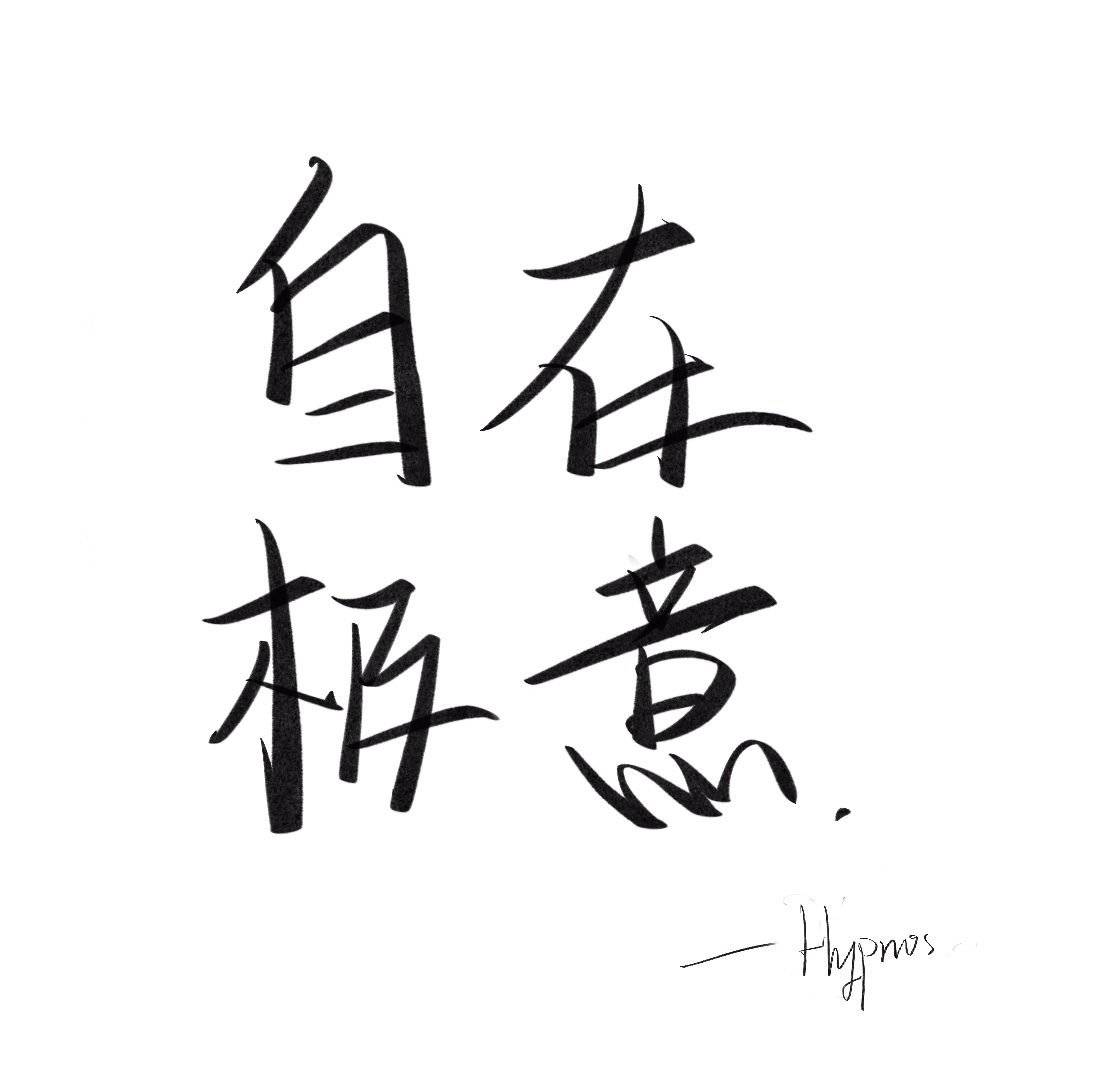 自在
极意.
—Hypnos